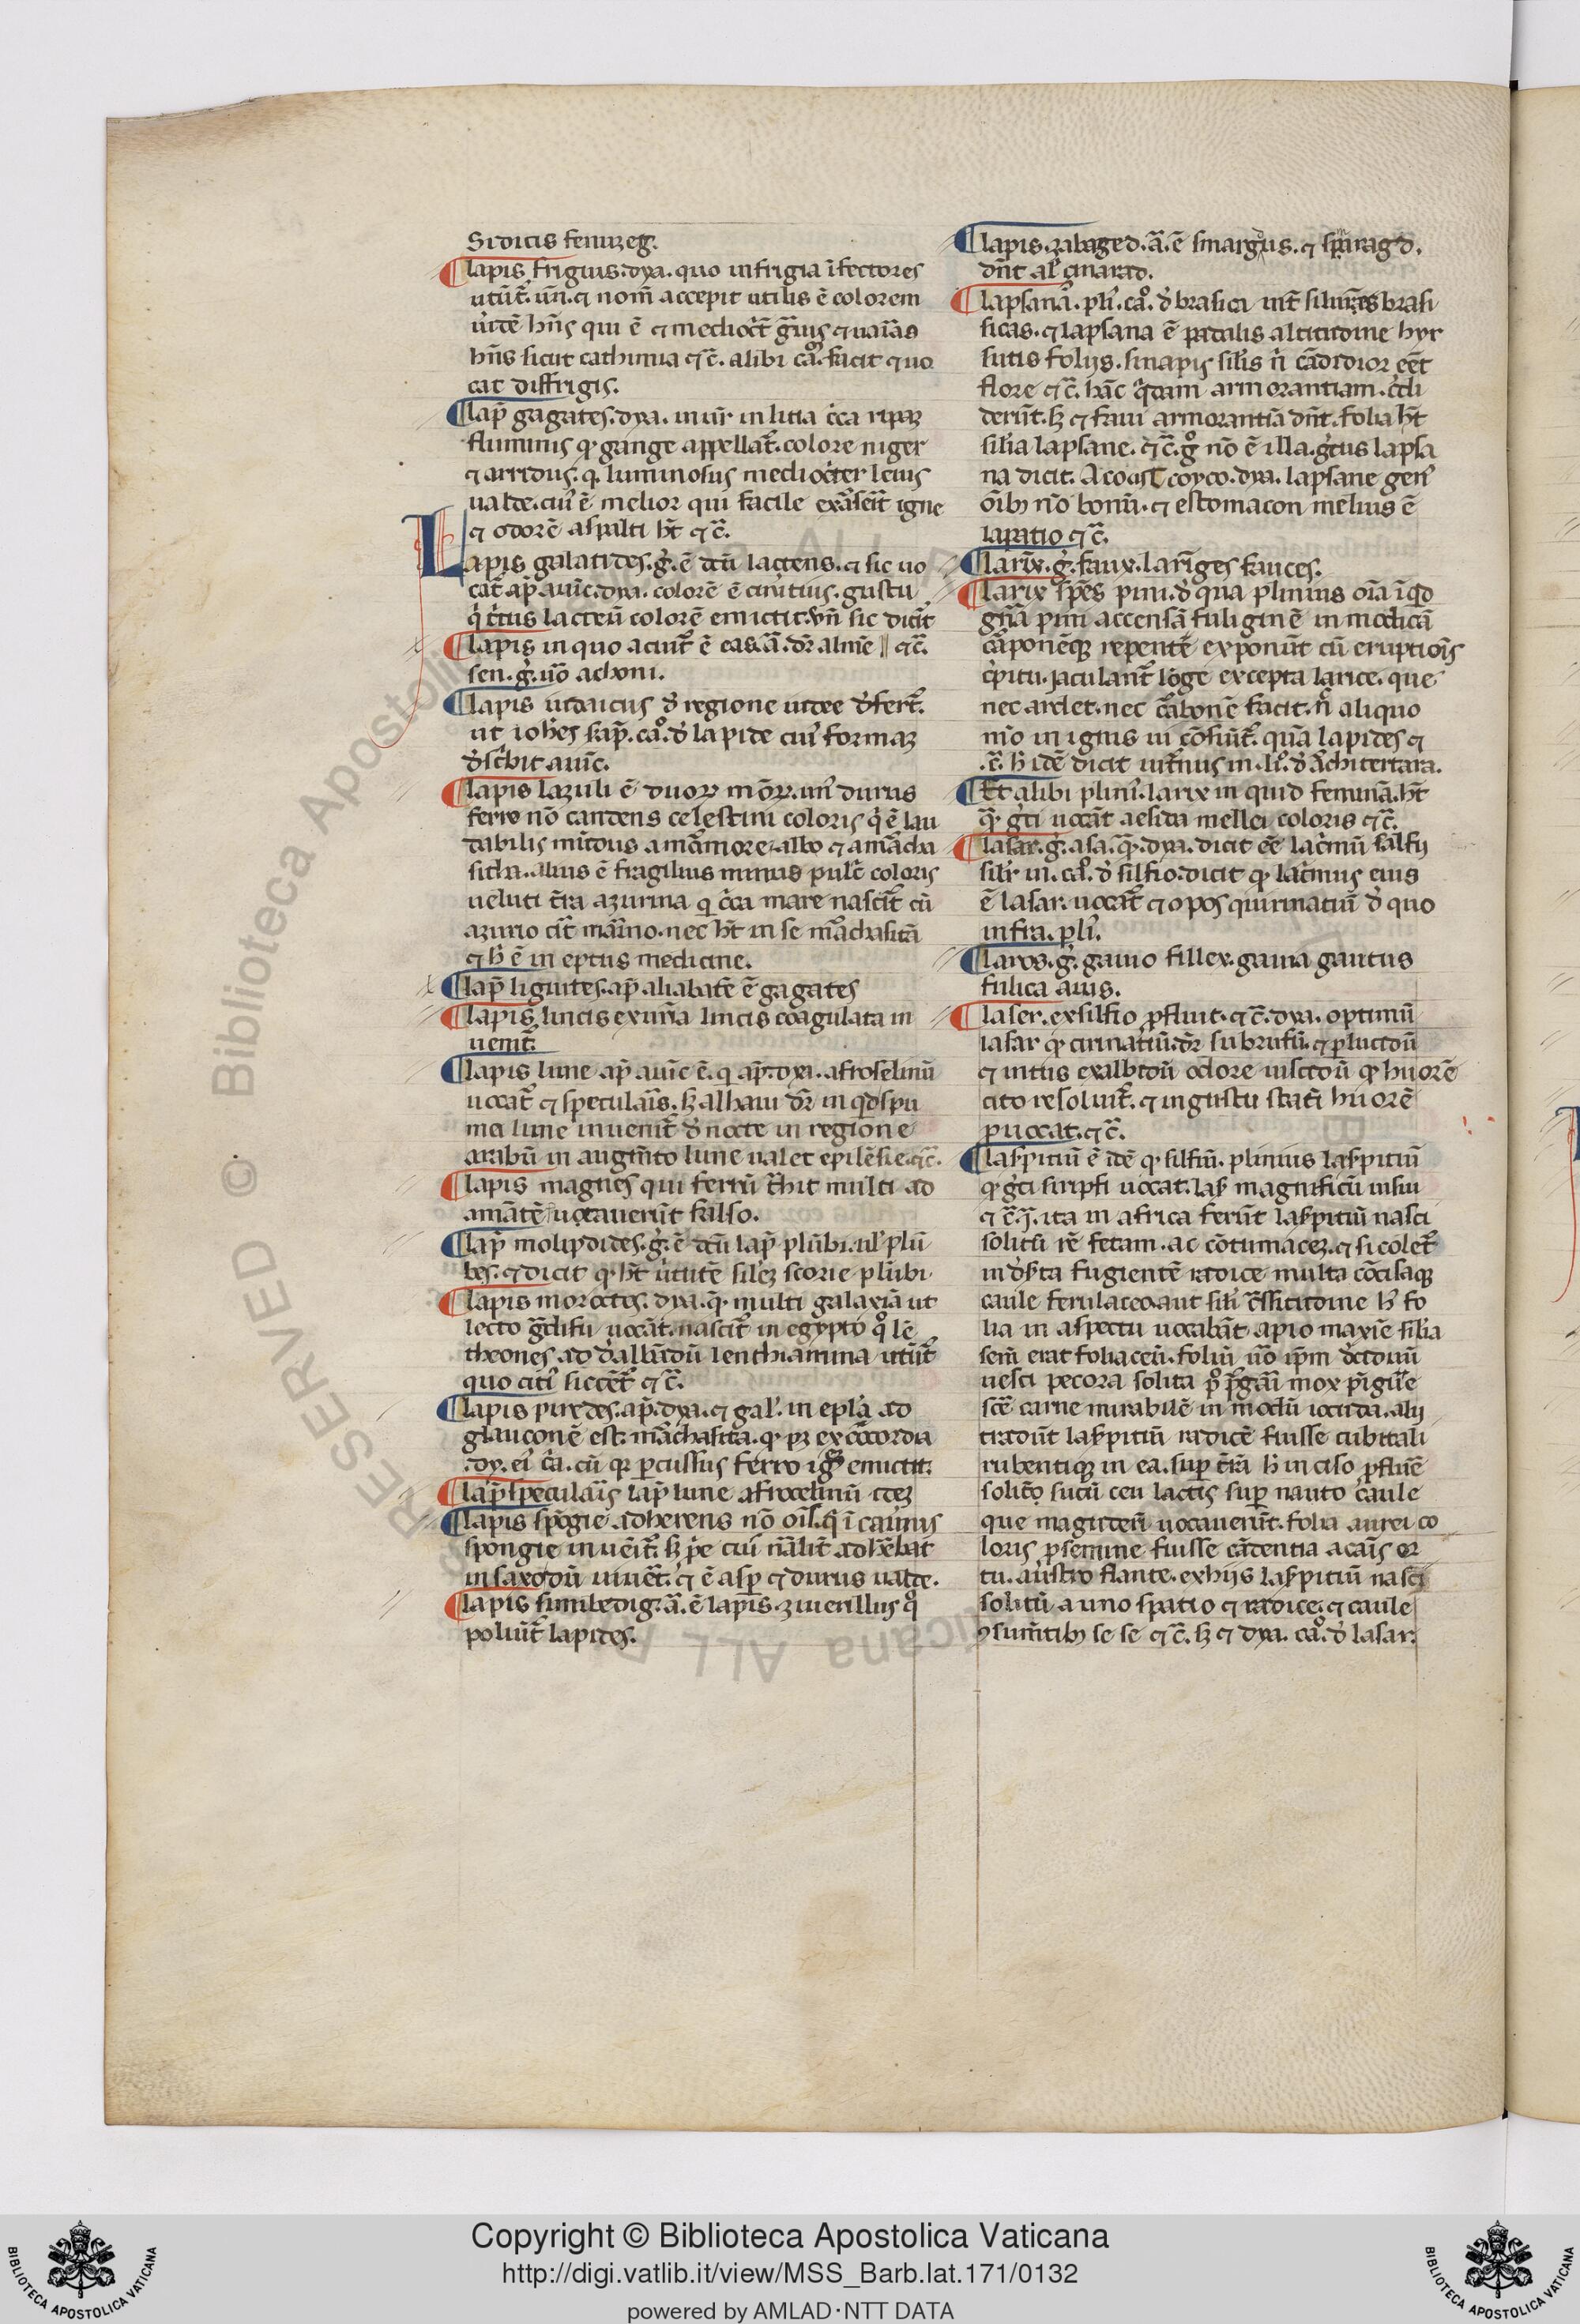 Sidicis feniızeg.
lapis frigius. dya. quo in frigia īfectores
utūt᷑. uñ. ⁊ nom̄ accepit utilis ē colorem
uirdē hñs qui ē ⁊ mediocr̄ gᷓuis ⁊ uaīas
hñs sicut cathimia ⁊ c̄. alibi caº. facit ⁊ uo
cat diffrigis.
lap̄ gagates. dya. inuīr in litia cͥca ripaꝫ
fluminis ꝙ gange appellat᷑. colore niger
⁊ arridus. ꝗ luminosus mediocͥter leuis
ualde. cuı᷑ ē melior qui facile exāseīt igne
⁊ odorē aspalti hꝫ ⁊ c̄.
Lapis galatides. gͥ. ē dcū̄ lactens. ⁊ sic uo
cat᷑ ap̄ auic̄. dya. colorē ē ciniͥtius. gustu
tͥtus lacteū colorē emictit. vñ sic dicit᷑
lapis in quo acuit᷑ ē eas. ā. dr̄ alme ⁊ c̄.
sen. gͥ. uo achoni.
lapis iudaicus đ regione iudee đfert᷑.
ut ioh̄es sap̄. caº. đ lapide cuı᷑ formaꝫ
đscͥbit auic̄.
lapis lazuli ē duoꝝ moꝝ. unͥ durus
ferro nō candens celestini coloris qͥ ē lau
dabilis mūdus a mārmore albo ⁊ a mārcha
sitha. alius ē fragilius minus pulcͥ coloris
ueluti tͥra azurina ꝗ cͥca mare nascit᷑ cū
azurio cit᷑ marīno. nec hꝫ in se mᷓchasitā
⁊ h̓ ē in eptus medicine.
lap̄ liginites. ap̄ aliabatē ē gagates
lapis lincis ex urīa lincis coagulata in
uenit᷑.
lapis lune ap̄ auic̄ ē. ꝗ ap̄. dya. afroselinū
uocat᷑ ⁊ speculaīs. sꝫ alhaui dr̄ in quid spu
ma lune inuenit᷑ đ nocte in regione
arabū in augm̄to lune ualet epilēsie. ⁊ c̄.
lapis magnes qui ferrū tͣhit multi ad
amātē uocauerūt falso.
lap̄ molipdides. gͥ. ē dcū̄ lap̄ plūbi. ul᷑ plū
bes. ⁊ dicit ꝙ hꝫ uͥtutē sil̓eꝫ scorie plūbi.
lapis moroctes. dya. ꝙ multi galaxiā ut
lecto gᷓdifu uocāt. nascit᷑ in egypto qº lē
theones ad đallƀdū lenthiamina utūt᷑
quo citi᷑ siccēt᷑ ⁊ c̄.
lapis pirides. ap̄. dya. ⁊ gal᷑. in epl̓a ad
glauconē est. mᷓchasita. ꝙ pꝫ ex cōcordia
.dy. ei᷑ cͣa. cū ꝗ ꝑcussus ferro ignē emictit.
lap̄ speculaīs lap̄ lune afroxelinū ideꝫ
lapis spōgie adherens nō oīs. sꝫ ī cauͥnis
spongie inueīt᷑. sꝫ p̄e cui nālit᷑ adhēbat
in saxodū uiuēt. ⁊ ē asꝑ ⁊ durus ualde.
lapis sumbedig. ā. ē lapis. zmerillus qº
poliūt᷑ lapides.
lapis. zabaged. ā. ē smargdus. ⁊ sparagd.
dñt al᷑ cinarad.
lapsana. pli᷑. caº. đ brasica int᷑ siluēs brasi
ficas. ⁊ lapsana ē pedalis altitudine hyr
sutis folijs. sinapis sil̓is nͥ cādidior eēt
flore ⁊ c̄. hāc qͥdam armorantiam. cͥdi
derūt. sꝫ ⁊ faui armorantiā dñt. folia hꝫ
sil̓ia lapsane. ⁊ c̄. gº nō ē illa. gͥtus lapsa
na dicit. A cocist coyco. dya. lapsane gen᷑
oībꝫ nō bonū. ⁊ estomacon melius ē
lapatio ⁊ c̄.
larīx. gͥ. faux. lariges fauces.
larix spēs pini. đ qua plinius oīa īqͥd
gñā pini accensā fuliginē in modicā
cābonēqꝫ repentē exponūt cū eruptiōis
cͥpitu. jaculant᷑ lōge excepta larice. que
nec ardet. nec cābonē facit. nͥ aliquo
mō in ignis ui cōsūit᷑. quā lapides ⁊
c̄. h̓ idē dicit uitᷓuius in. li. đ arͨhitectura.
Et alibi plini᷑. larix in quid femina. hꝫ
ꝙ gͥci uocāt aesida mellei coloris ⁊ c̄.
lasar. gͥ. asa. ꝙ. dya. dicit eē lacͥmū silfij
sil̓r in. ca. đ silfio. dicit ꝙ lacͥmus eius
ē lasar. uocat᷑ ⁊ opos quirinatiū đ quo
infra. pli᷑.
laros. gͥ. gauio fillex. gauia gantus
fulica auis.
laser. ex silfio ꝓfluit. ⁊ c̄. dya. optimū
lasar ꝙ cirinatiū. dr̄ subrufū ⁊ ꝑlucidū
⁊ intus exalbidū odore uiscidū ꝙ huorē
cito resoluit᷑. ⁊ in gustu statī huorē
ꝓuocat. ⁊ c̄.
laspitiū ē idē ꝙ silfiū. plinius laspitiū
ꝙ gͥci siripsi uocat. las̓ magnificū insui
⁊ c̄. ꝗ. ita in africa ferūt laspitiū nasci
solitū rē ferām. ac cōtumaceꝫ. ⁊ si colet᷑
in đsͥta fugientē radice multa cōcisaqꝫ
caule ferulaceo aut sil̓i cͣssitudine h̓ fo
lia in aspectu uocabāt apio maxīe sil̓ia
sem̄ erat foliaceū. foliū uº ip̄m đciduū
uesci pecora solita pº pᷓgāī mox pīgue
scē carne mirabilē in modū iocūda. alij
tradūt laspitiū radicē fuisse cubitali
rubentiqꝫ in ea. suꝑ tͥrā h̓ in ciso ꝓfluē
solito sucū ceu lactis suꝑ nauto caule
que magiderī uocauerūt. folia aurei co
loris ꝓ semine fuisse cādentia a canīs or
tu. austro flante. ex hijs laspitiū nasci
solitū a uno spatio ⁊ radice ⁊ caule
ꝯsumētibꝫ se se ⁊ c̄. sꝫ ⁊ dya. caº. đ lasar.
Copyright © Biblioteca Apostolica Vaticana
http://digi.vatlib.it/view/MSS_Barb.lat.171/0132
powered by AMLAD·NTT DATA
BIBLIOTECA APOSTOLICA VATICANA
BIBLIOTECA APOSTOLICA VATICANA